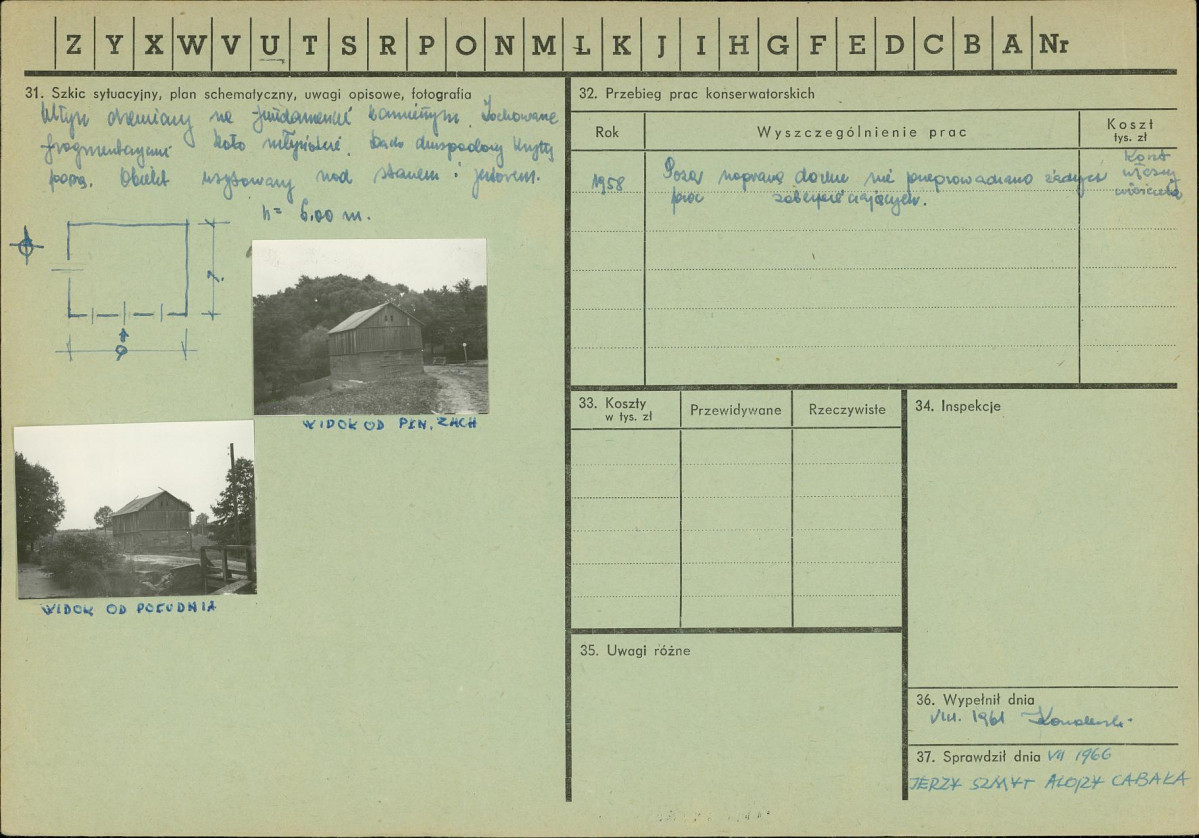 Z Y X W V U T S R P O N M Ł K J I H G F E D C B A Nr
31. Szkic sytuacyjny, plan schematyczny, uwagi opisowe, fotografia
Młyn drewniany na fundamencie kamiennym. Zachowane
fragmentaryczni koło młyńskie. Dach dwuspadowy kryty
papą. Obiekt usytuowany nad stawem i jeziorem.
h = 6,00 m.
7.
9
WIDOK OD PŁN. ZACH
WIDOK OD POŁUDNIA
32. Przebieg prac konserwatorskich
Rok
Wyszczególnienie prac
Koszt
tys. zł
1958
Poza naprawą dachu nie przeprowadzano żadnych
prac zabezpieczających.
Koszt
własny
właściciela
33. Koszty
w tys. zł
Przewidywane
Rzeczywiste
34. Inspekcje
35. Uwagi różne
36. Wypełnił dnia
VIII. 1961 Kowalewski
37. Sprawdził dnia VII 1966
JERZY SZMYT ALOJZY CABAŁA